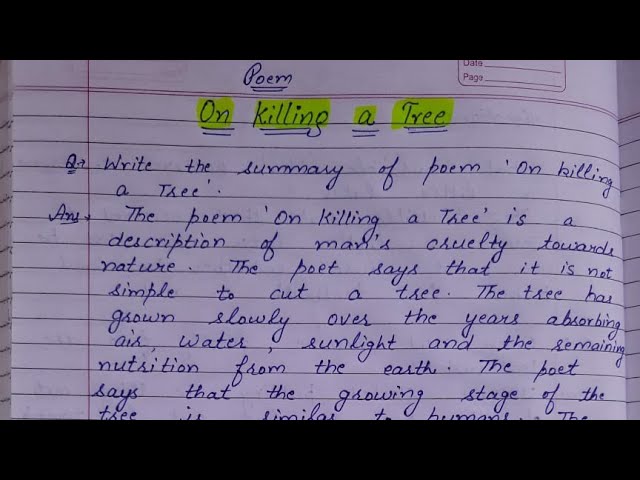 Date
Page
Poem
On Killing a Tree
Q→ Write the summary of poem 'On killing
a Tree'.
Ans→ The poem 'On Killing a Tree' is a
description of man's cruelty towards
nature. The poet says that it is not
simple to cut a tree. The tree has
grown slowly over the years absorbing
air, water, sunlight and the remaining
nutrition from the earth. The poet
says that the growing stage of the
tree is similar to humans. The